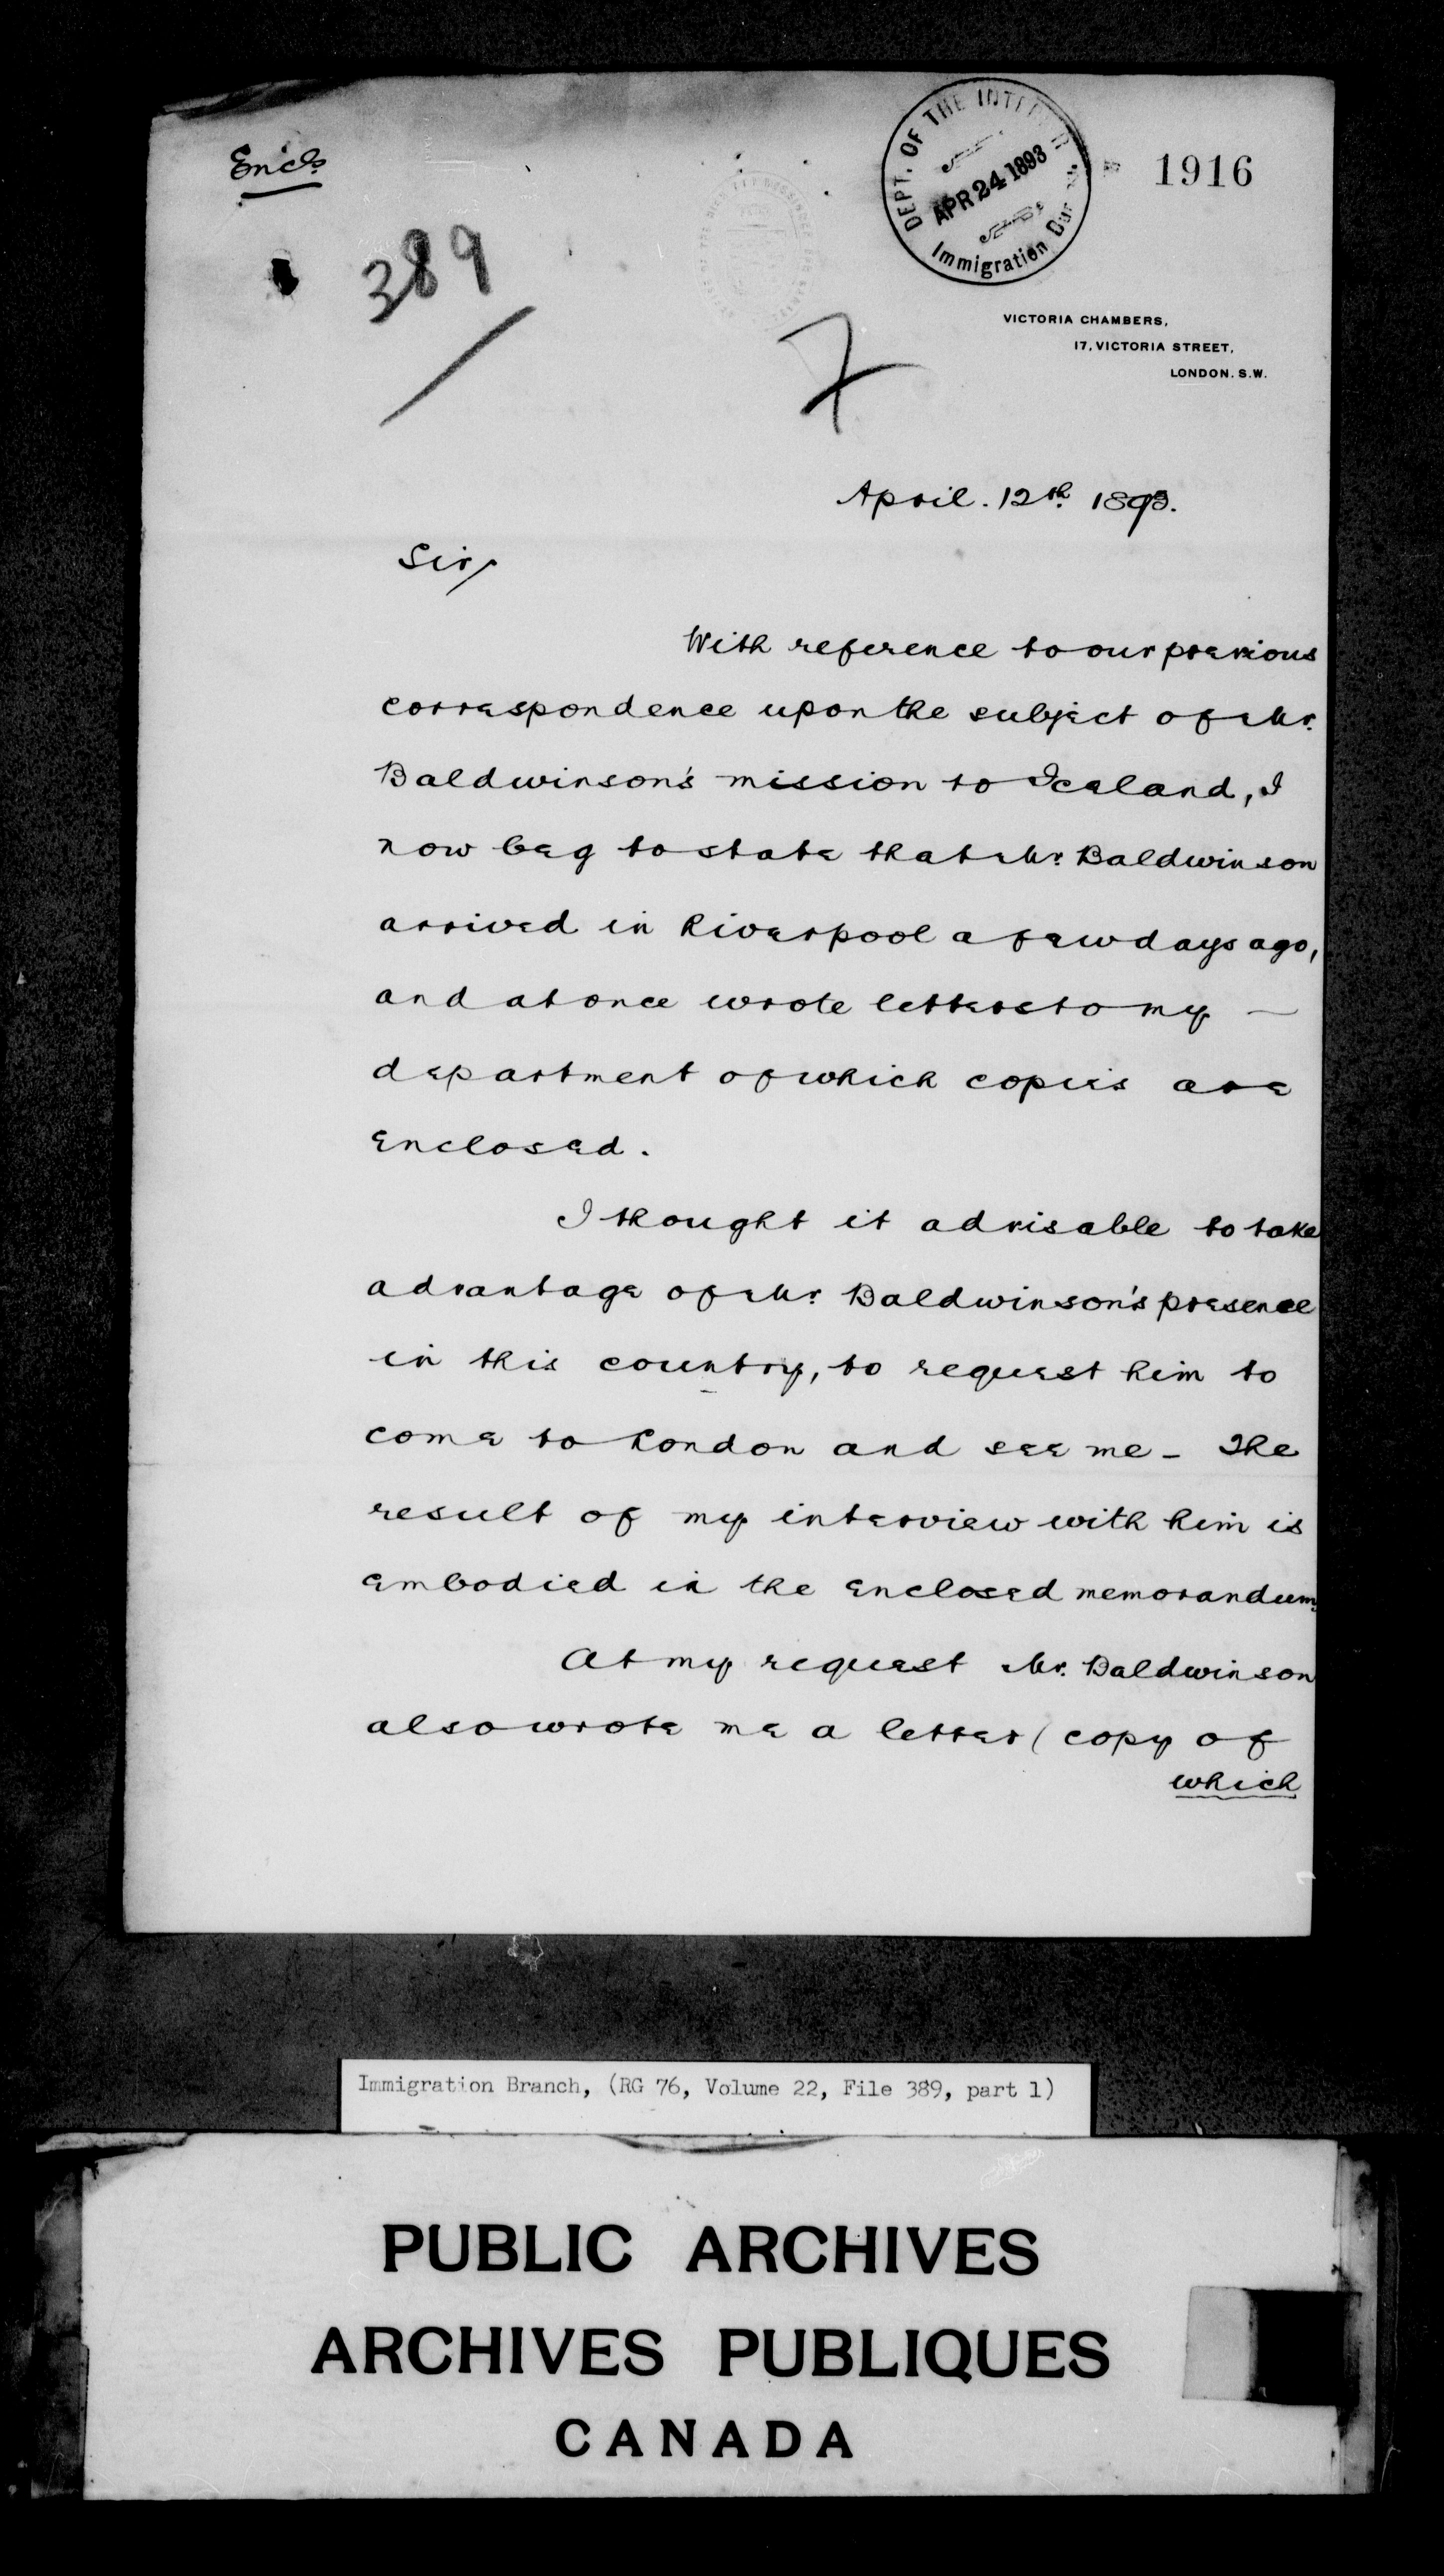 Encls
DEPT. OF THE INTERIOR
APR 24 1893
Immigration
1916
389
VICTORIA CHAMBERS,
17, VICTORIA STREET,
LONDON. S.W.
April. 12th 1893.
Sir,
With reference to our previous
correspondence upon the subject of Mr.
Baldwinson's mission to Iceland, I
now beg to state that Mr. Baldwinson
arrived in Liverpool a few days ago,
and at once wrote letters to my —
department of which copies are
enclosed.
I thought it advisable to take
advantage of Mr. Baldwinson's presence
in this country, to request him to
come to London and see me — The
result of my interview with him is
embodied in the enclosed memorandum.
At my request Mr. Baldwinson
also wrote me a letter (copy of
which
Immigration Branch, (RG 76, Volume 22, File 389, part 1)
PUBLIC ARCHIVES
ARCHIVES PUBLIQUES
CANADA